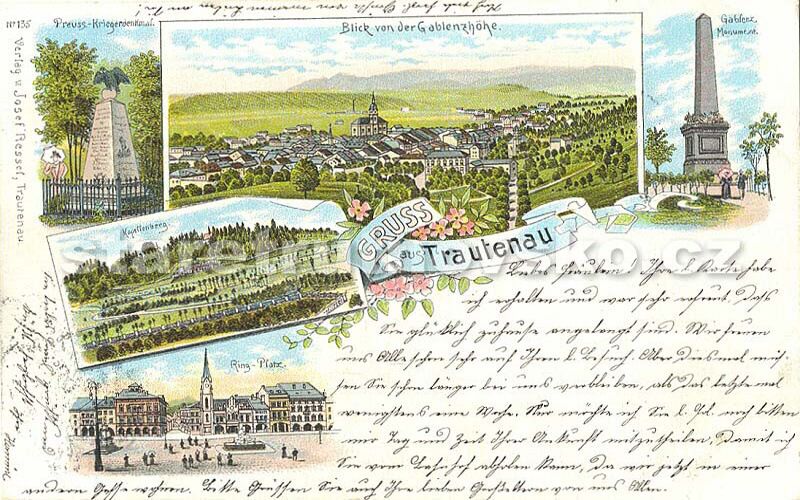 Nº 135
Preuss.-Kriegerdenkmal.
Blick von der Gablenzhöhe.
Gablenz
Monument.
Verlag v. Josef Ressel, Trautenau
Kapellenberg.
GRUSS
aus Trautenau
Ring-Platz.
staretrutnovsko.cz
Liebes Fräulein! Ihre l. Karte habe
ich erhalten und war sehr erfreut, dass
Sie glücklich zuhause angelangt sind. Wir freuen
uns Alle schon sehr auf Ihren l. Besuch. Aber diesmal müs-
sen Sie schon länger bei uns verbleiben, als das letzte mal
wenigstens eine Woche. Nur möchte ich Sie l. Frl. noch bitten
mir Tag und Zeit Ihrer Ankunft mitzutheilen, damit ich
Sie vom Bahnhof abholen kann, da wir jetzt in einer
andern Gasse wohnen. Bitte Grüssen Sie auch Ihre lieben Geschwister von uns Allen.